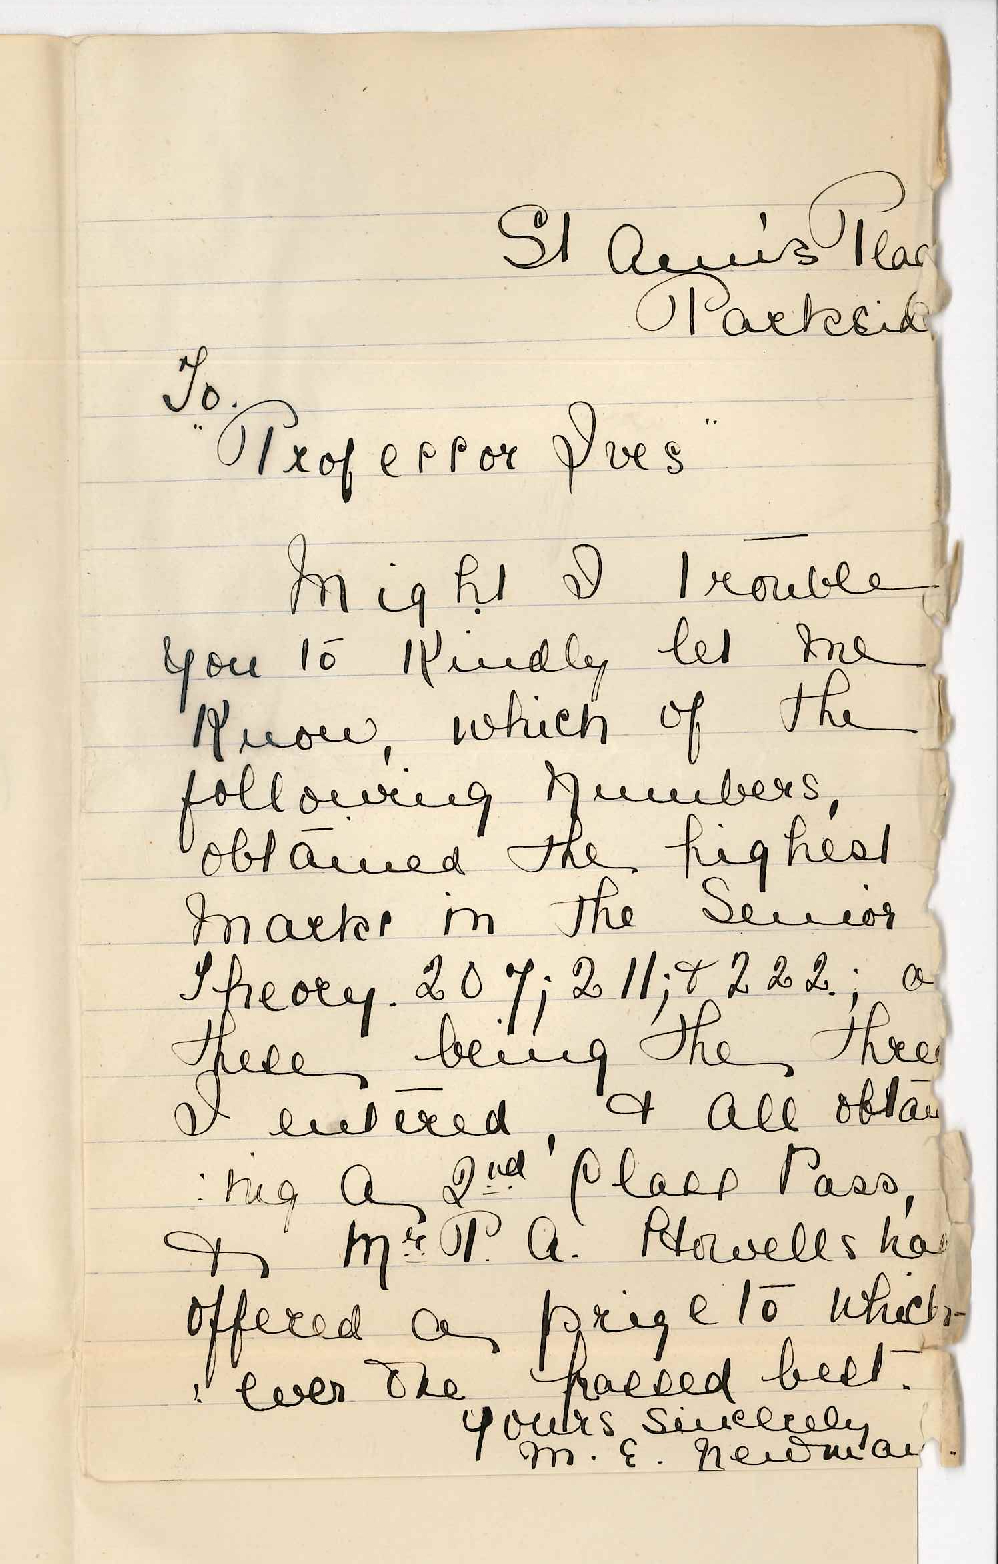 St Ann's Plac
Parkside
To.
"Professor Ives"
Might I trouble
you to Kindly let me
Know, which of the
following Numbers,
obtained the highest
Marks in the Senior
Theory. 207; 211; & 222.; a
these being the three
I entered, & all obtain
:ing a 2nd Class Pass,
& Mr P. A. Howells has
offered a prize to which-
:ever one passed best.
Yours Sincerely
M. E. Newman.